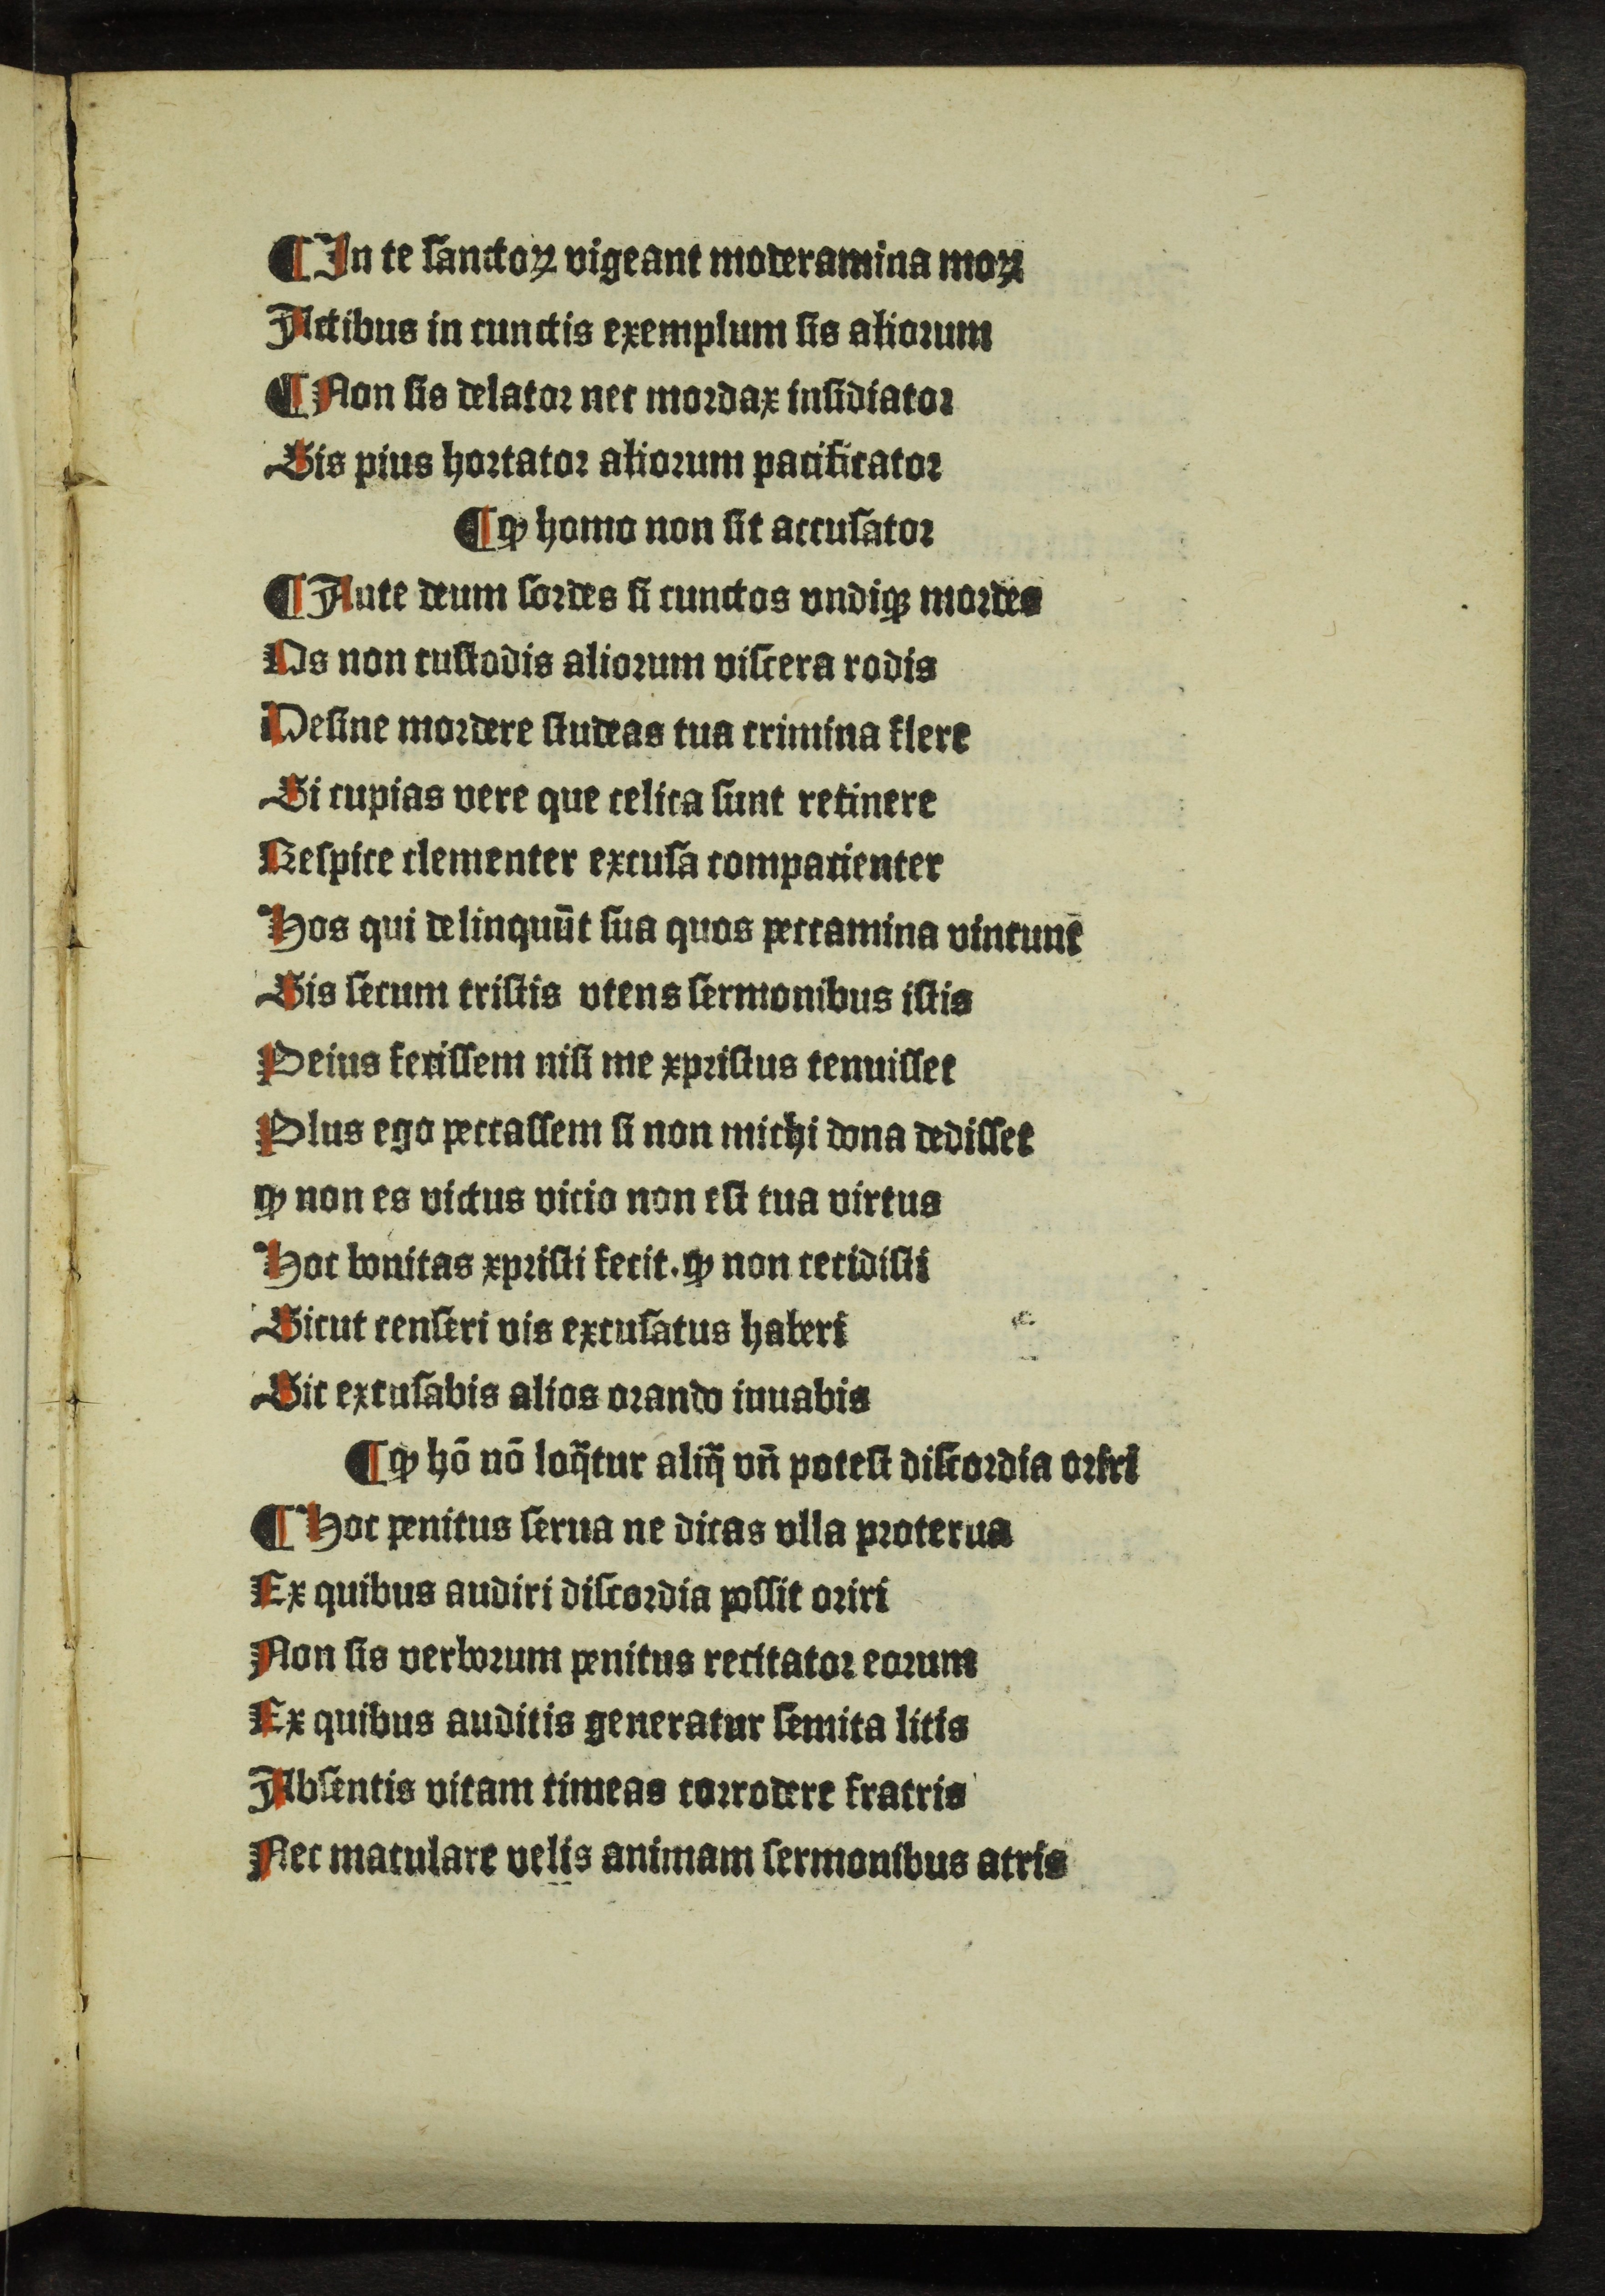 ¶ In te sanctoꝝ vigeant moderamina moꝝ
Actibus in cunctis exemplum sis aliorum
¶ Non sis delator nec mordax insidiator
Sis pius hortator aliorum pacificator
¶ ꝙ homo non sit accusator
¶ Aute deum sordes si cunctos vndiqꝫ mordes
Os non custodis aliorum viscera rodis
Desine mordere studeas tua crimina flere
Si cupias vere que celica sunt retinere
Respice clementer excusa compacienter
Hos qui delinquūt sua quos peccamina vincunt
Sis secum tristis vtens sermonibus istis
Peius fecissem nisi me xpristus tenuisset
Plus ego peccassem si non michi dona dedisset
ꝙ non es victus vicio non est tua virtus
Hoc bonitas xpristi fecit. ꝙ non cecidisti
Sicut censeri vis excusatus haberi
Sic excusabis alios orando iuuabis
¶ ꝙ hō nō loq̄tur aliq̄ vn̄ potest discordia oriri
¶ Hoc penitus serua ne dicas vlla proterua
Ex quibus audiri discordia possit oriri
Non sis verborum penitus recitator eorum
Ex quibus auditis generatur semita litis
Absentis vitam timeas corrodere fratris
Nec maculare velis animam sermonibus atris